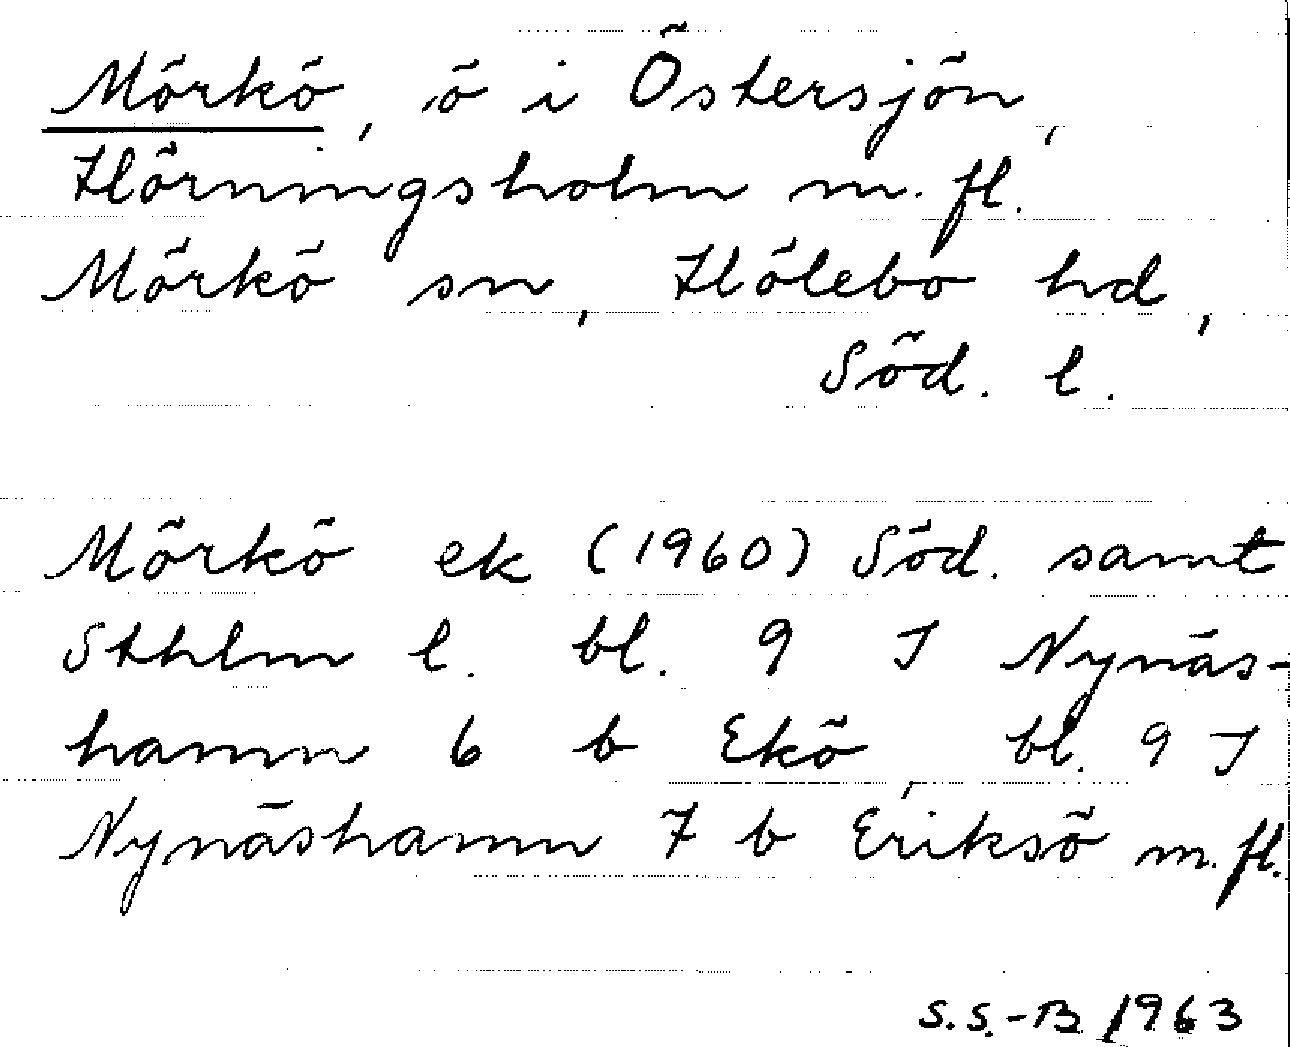 Mörkö, ö i Östersjön,
Hörningsholm m. fl.
Mörkö sn, Hölebo hd,
Söd. l.
Mörkö ek (1960) Söd. samt
Sthlm l. bl. 9 I Nynäs-
hamn 6 b Ekö, bl. 9 I
Nynäshamn 7 b Eriksö m. fl.
S.S.-B 1963